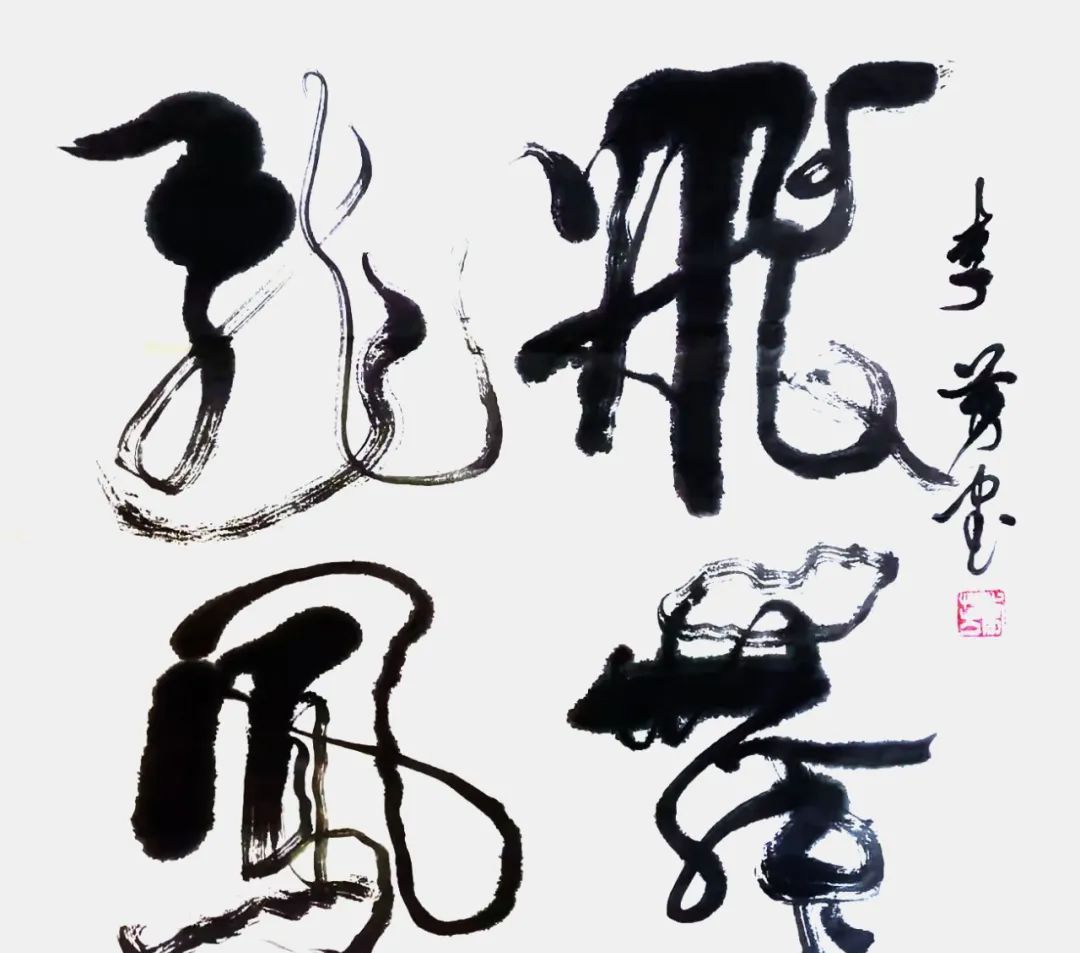 龍飛
鳳舞
李芳書